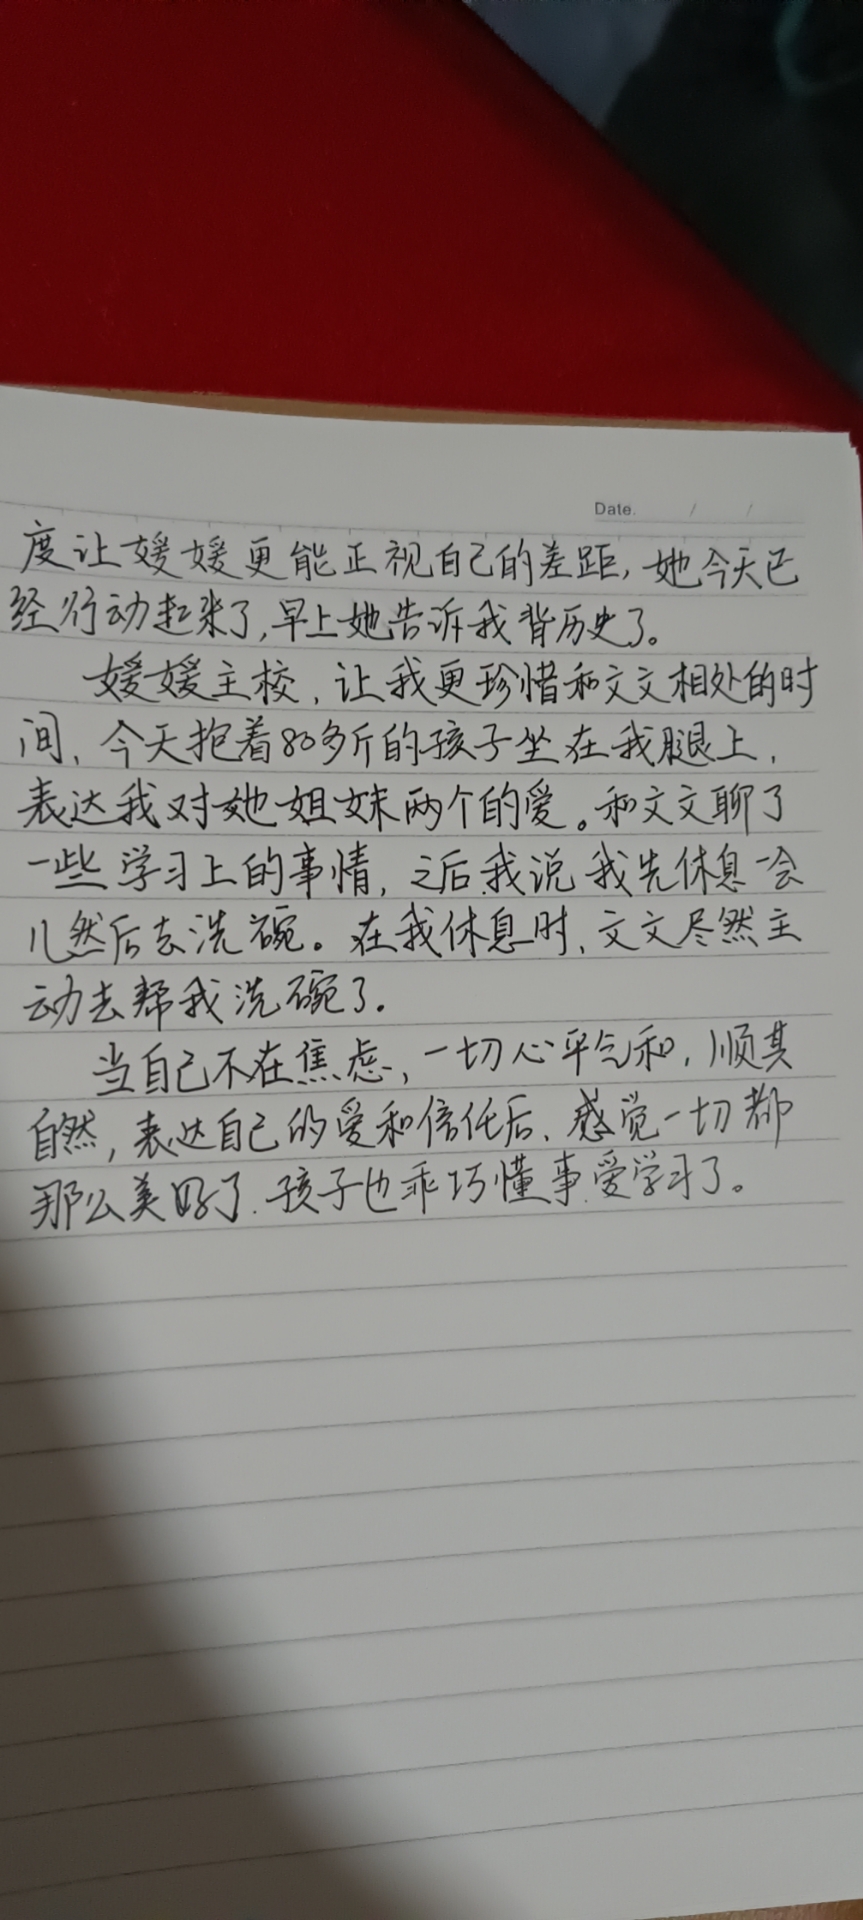 Date. / /
度让媛媛更能正视自己的差距,她今天已
经行动起来了,早上她告诉我背历史了。
媛媛主校,让我更珍惜和文文相处的时
间,今天抱着80多斤的孩子坐在我腿上,
表达我对她姐妹两个的爱。和文文聊了
一些学习上的事情,之后,我说我先休息一会
儿然后去洗碗。在我休息时,文文尽然主
动去帮我洗碗了.
当自己不在焦虑,一切心平气和,顺其
自然,表达自己的爱和信任后、感觉一切都
那么美好了.孩子也乖巧懂事.爱学习了。